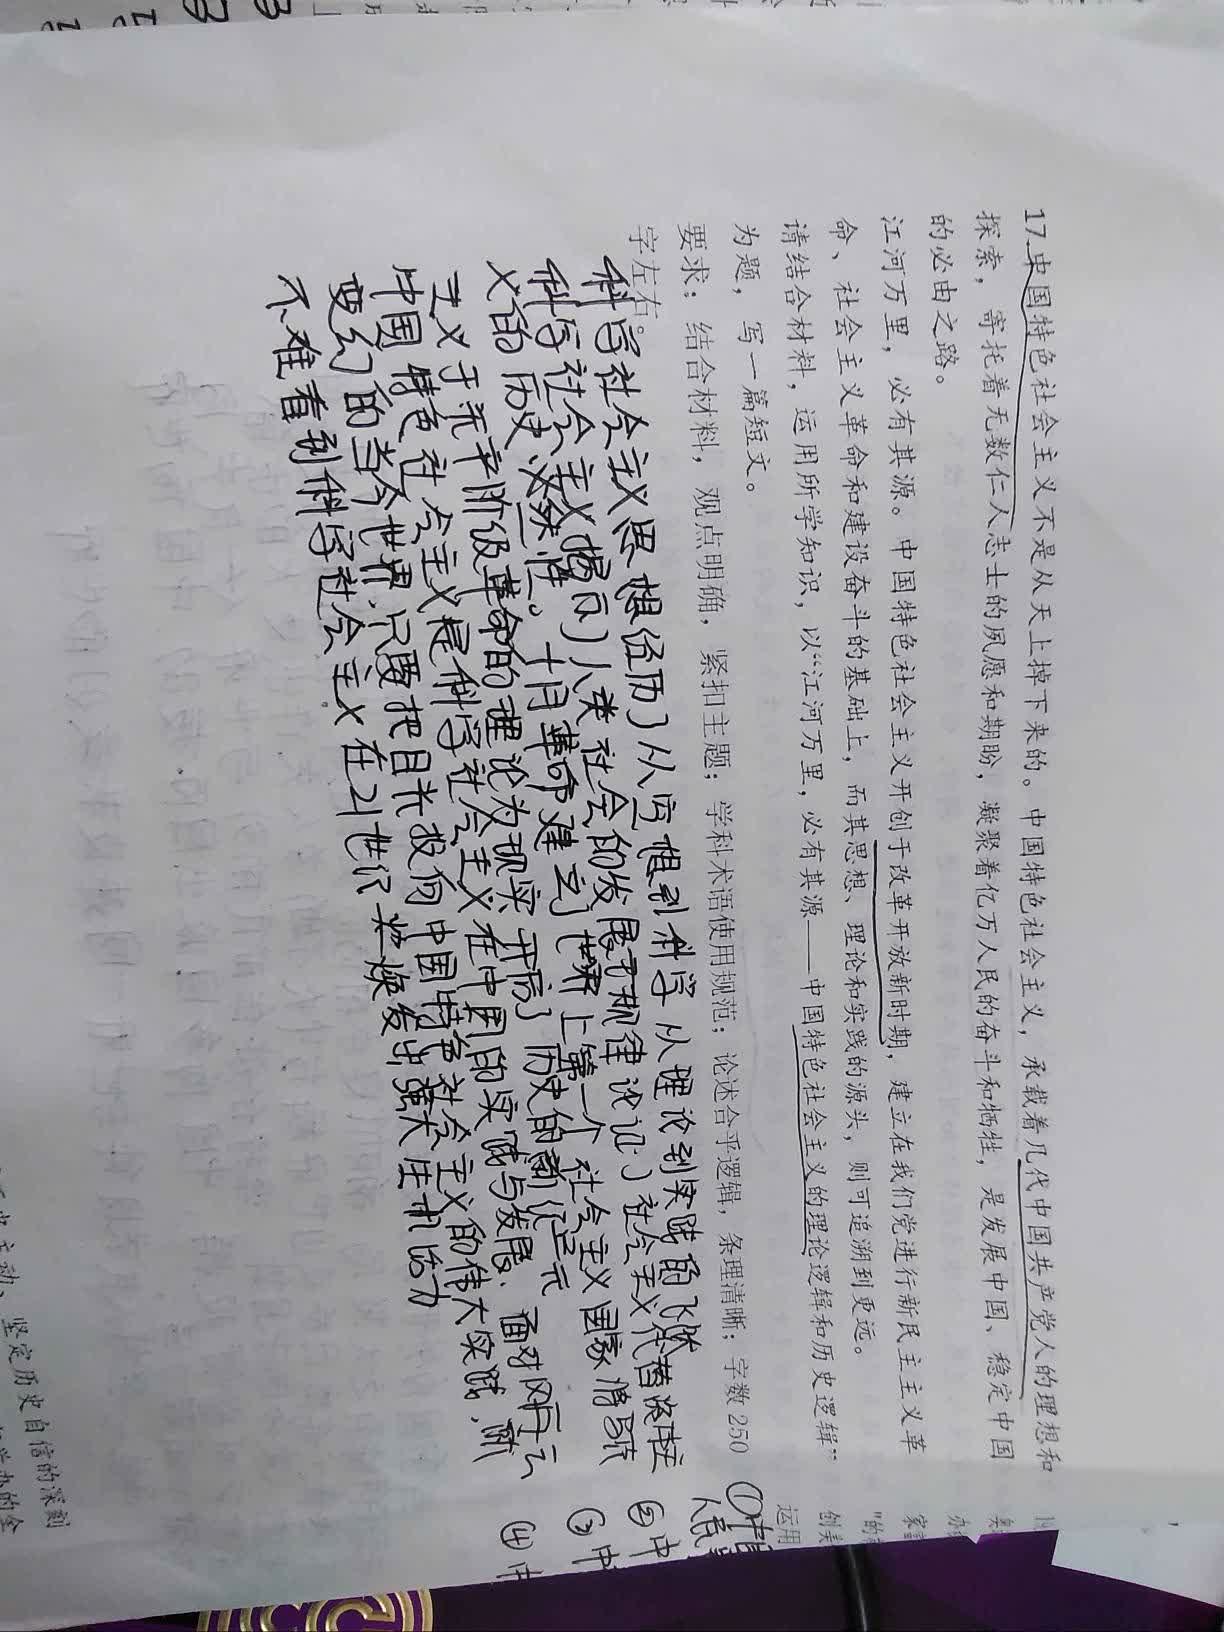 17.中国特色社会主义不是从天上掉下来的。中国特色社会主义，承载着几代中国共产党人的理想和
探索，寄托着无数仁人志士的夙愿和期盼，凝聚着亿万人民的奋斗和牺牲，是发展中国、稳定中国
的必由之路。
江河万里，必有其源。中国特色社会主义开创于改革开放新时期，建立在我们党进行新民主主义革
命、社会主义革命和建设奋斗的基础上，而其思想、理论和实践的源头，则可追溯到更远。
请结合材料，运用所学知识，以“江河万里，必有其源——中国特色社会主义的理论逻辑和历史逻辑”
为题，写一篇短文。
要求：结合材料，观点明确，紧扣主题；学科术语使用规范；论述合乎逻辑，条理清晰；字数250
字左右。
科学社会主义思想经历了从空想到科学 从理论到实践的飞跃
科学社会主义揭示了人类社会的发展规律论证了社会主义代替资本主
义的历史必然性。十月革命建立了世界上第一个社会主义国家 将
主义于无产阶级革命的理论为现实 开启了历史的新纪元
中国特色社会主义是科学社会主义在中国的实践与发展. 面对风云
变幻的当今世界.只要把目光投向中国特色社会主义的伟大实践.就
不难看到科学社会主义在21世纪焕发出强大生机活力
①中
人民
②中
③中
④中
运用
坚定历史自信的深刻